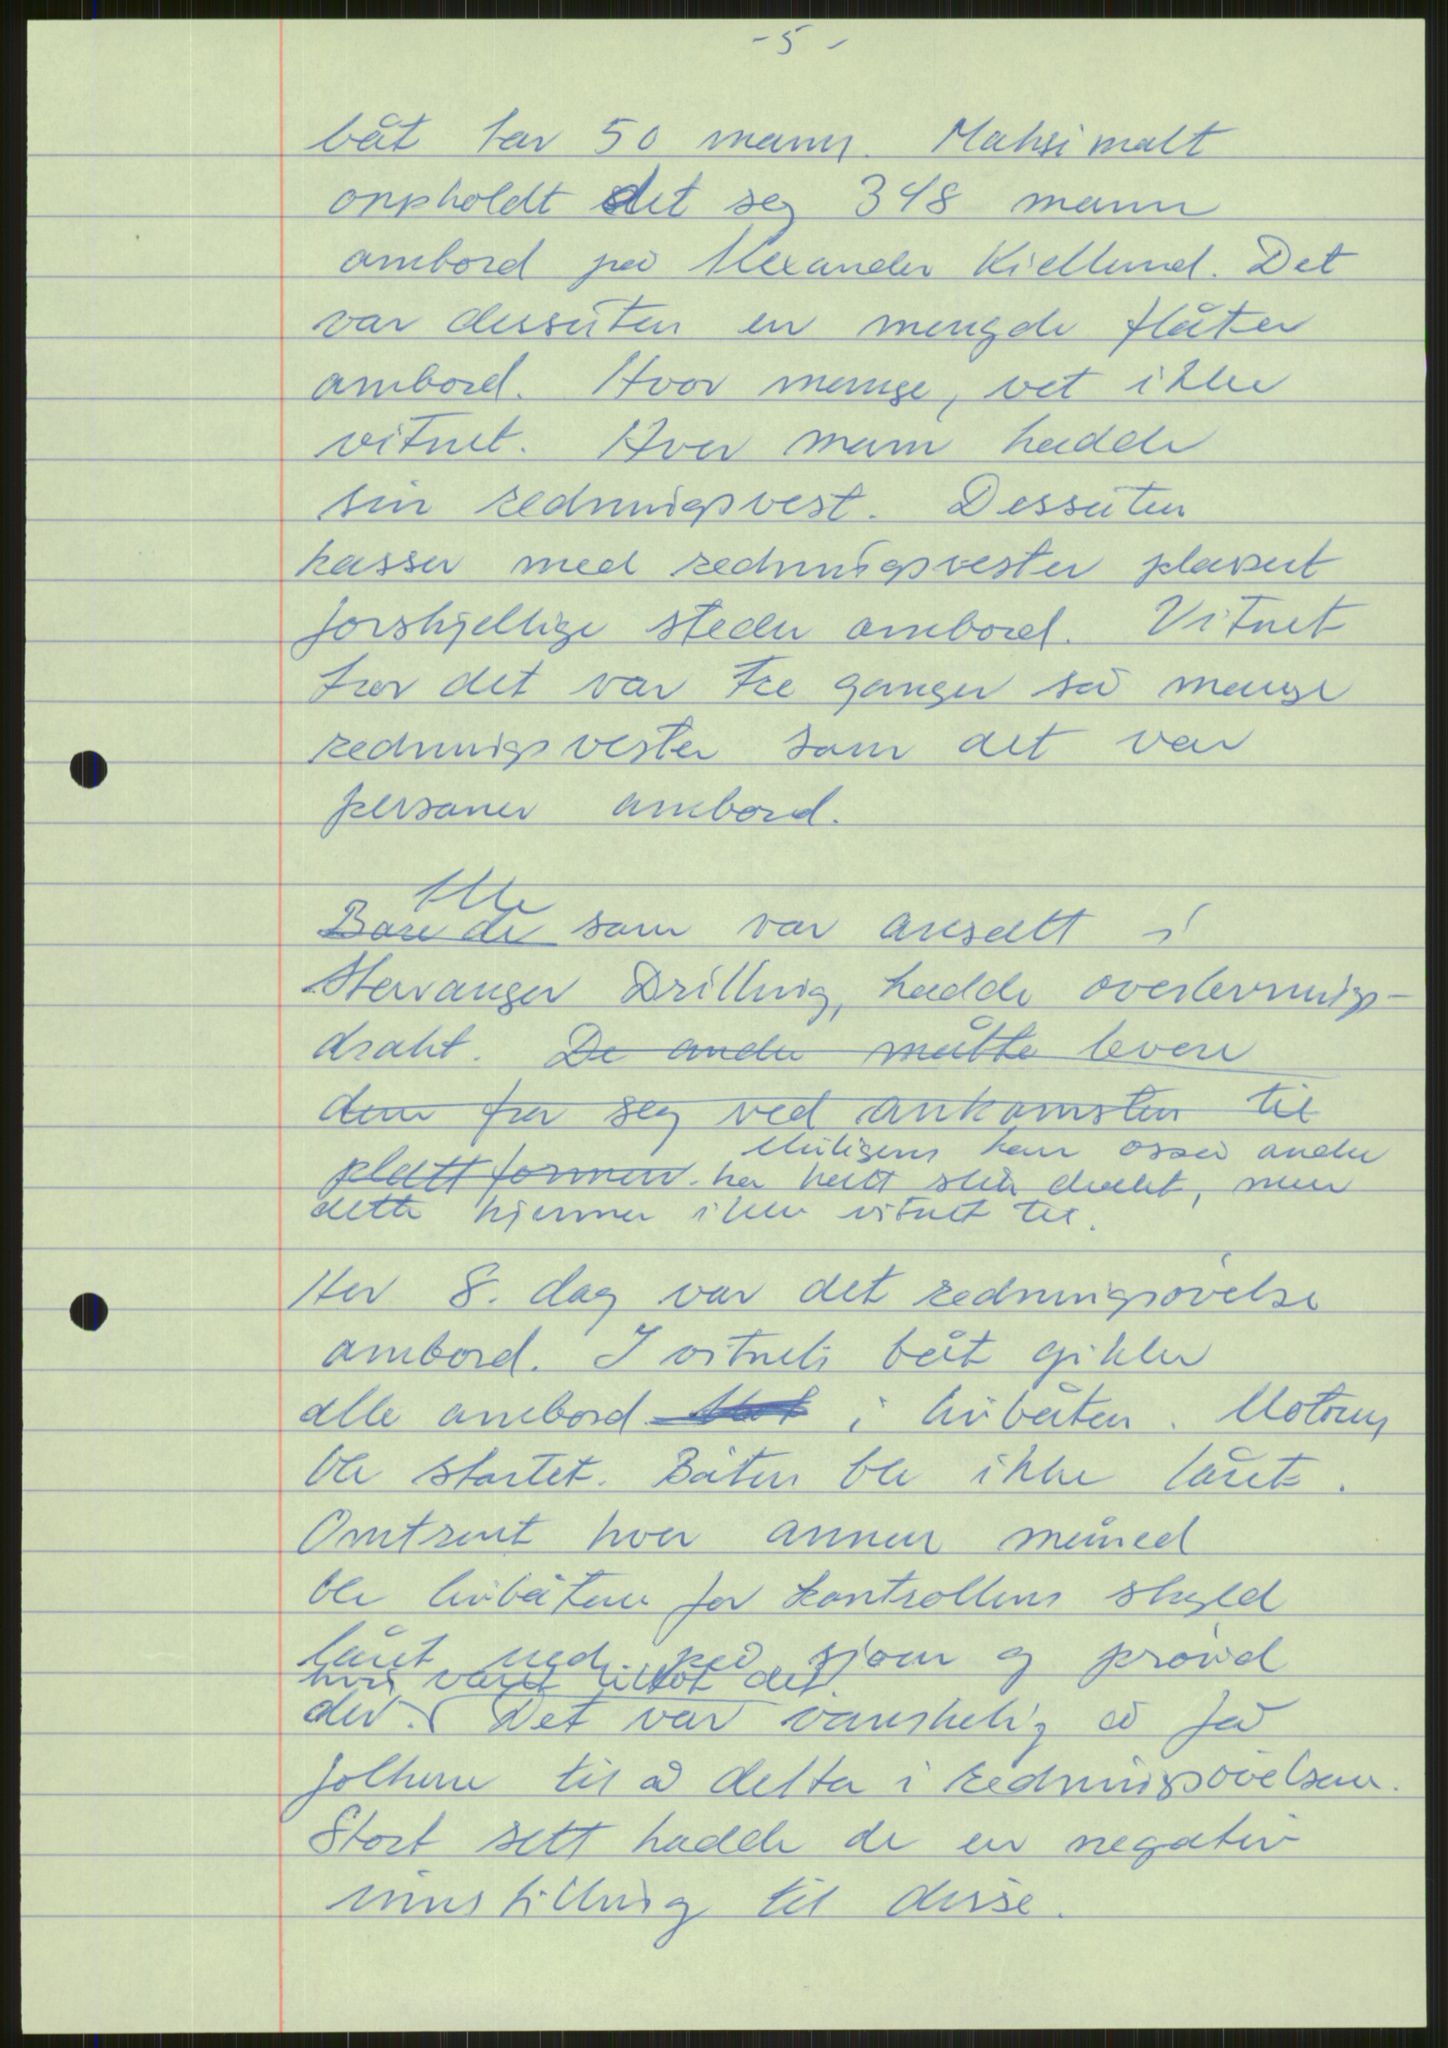 - 5 -
båt tar 50 mann. Maksimalt
oppholdt det seg 348 mann
ombord på Alexander Kielland. Det
var dessuten en mengde flåter
ombord. Hvor mange, vet ikke
vitnet. Hver mann hadde
sin redningsvest. Dessuten
kasser med redningsvester plasert
forskjellige steder ombord. Vitnet
tror det var tre ganger så mange
redningsvester som det var
personer ombord.
Alle
Bare de som var ansatt i
Stavanger Drilling, hadde overlevnings-
drakt. De andre måtte levere
dem fra seg ved ankomsten til
Muligens kan også andre
plattformen. ha hatt slik drakt, men
dette kjenner ikke vitnet til.
Hver 8. dag var det redningsøvelse
ombord. I vitnets båt gikk
alle ombord i livbåten. Motoren
ble startet. Båten ble ikke låret.
Omtrent hver annen måned
ble livbåtene for kontrollens skyld
låret ned på sjøen og prøvd
hvis været tillot det.
der. Det var vanskelig å få
folkene til å delta i redningsøvelsene.
Stort sett hadde de en negativ
innstilling til disse.